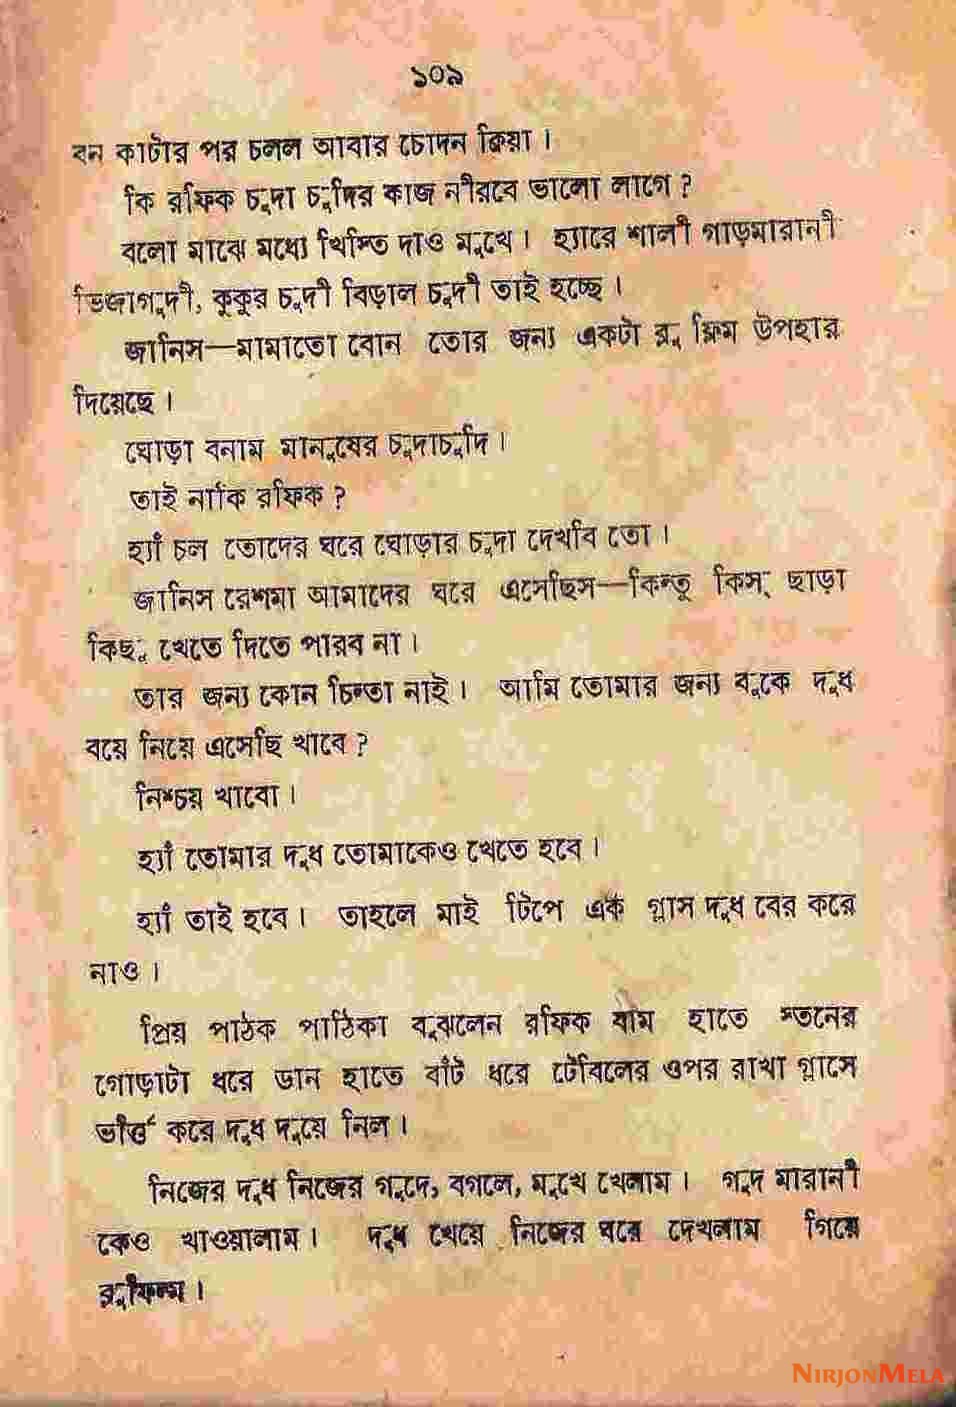 ১০৯
বন কাটার পর চলল আবার চোদন ক্রিয়া ।
কি রফিক চুদা চুদির কাজ নীরবে ভালো লাগে ?
বলো মাঝে মধ্যে খিস্তি দাও মুখে । হ্যারে শালী গাড়মারানী
ভিজাগুদী, কুকুর চুদী বিড়াল চুদী তাই হচ্ছে ।
জানিস—মামাতো বোন তোর জন্য একটা ব্লু ফ্লিম উপহার
দিয়েছে ।
ঘোড়া বনাম মানুষের চুদাচুদি ।
তাই নাকি রফিক ?
হ্যাঁ চল তোদের ঘরে ঘোড়ার চুদা দেখবি তো ।
জানিস রেশমা আমাদের ঘরে এসেছিস—কিন্তু কিস্ ছাড়া
কিছু খেতে দিতে পারব না ।
তার জন্য কোন চিন্তা নাই । আমি তোমার জন্য বুকে দুধ
বয়ে নিয়ে এসেছি খাবে ?
নিশ্চয় খাবো ।
হ্যাঁ তোমার দুধ তোমাকেও খেতে হবে ।
হ্যাঁ তাই হবে । তাহলে মাই টিপে এক গ্লাস দুধ বের করে
নাও ।
প্রিয় পাঠক পাঠিকা বুঝলেন রফিক বাম হাতে স্তনের
গোড়াটা ধরে ডান হাতে বাঁট ধরে টেবিলের ওপর রাখা গ্লাসে
ভর্ত্তি করে দুধ দুয়ে নিল ।
নিজের দুধ নিজের গুদে, বগলে, মুখে খেলাম । গুদ মারানী
কেও খাওয়ালাম । দুধ খেয়ে নিজের ঘরে দেখলাম গিয়ে
ব্লুফিল্ম ।
NIRJONMELA